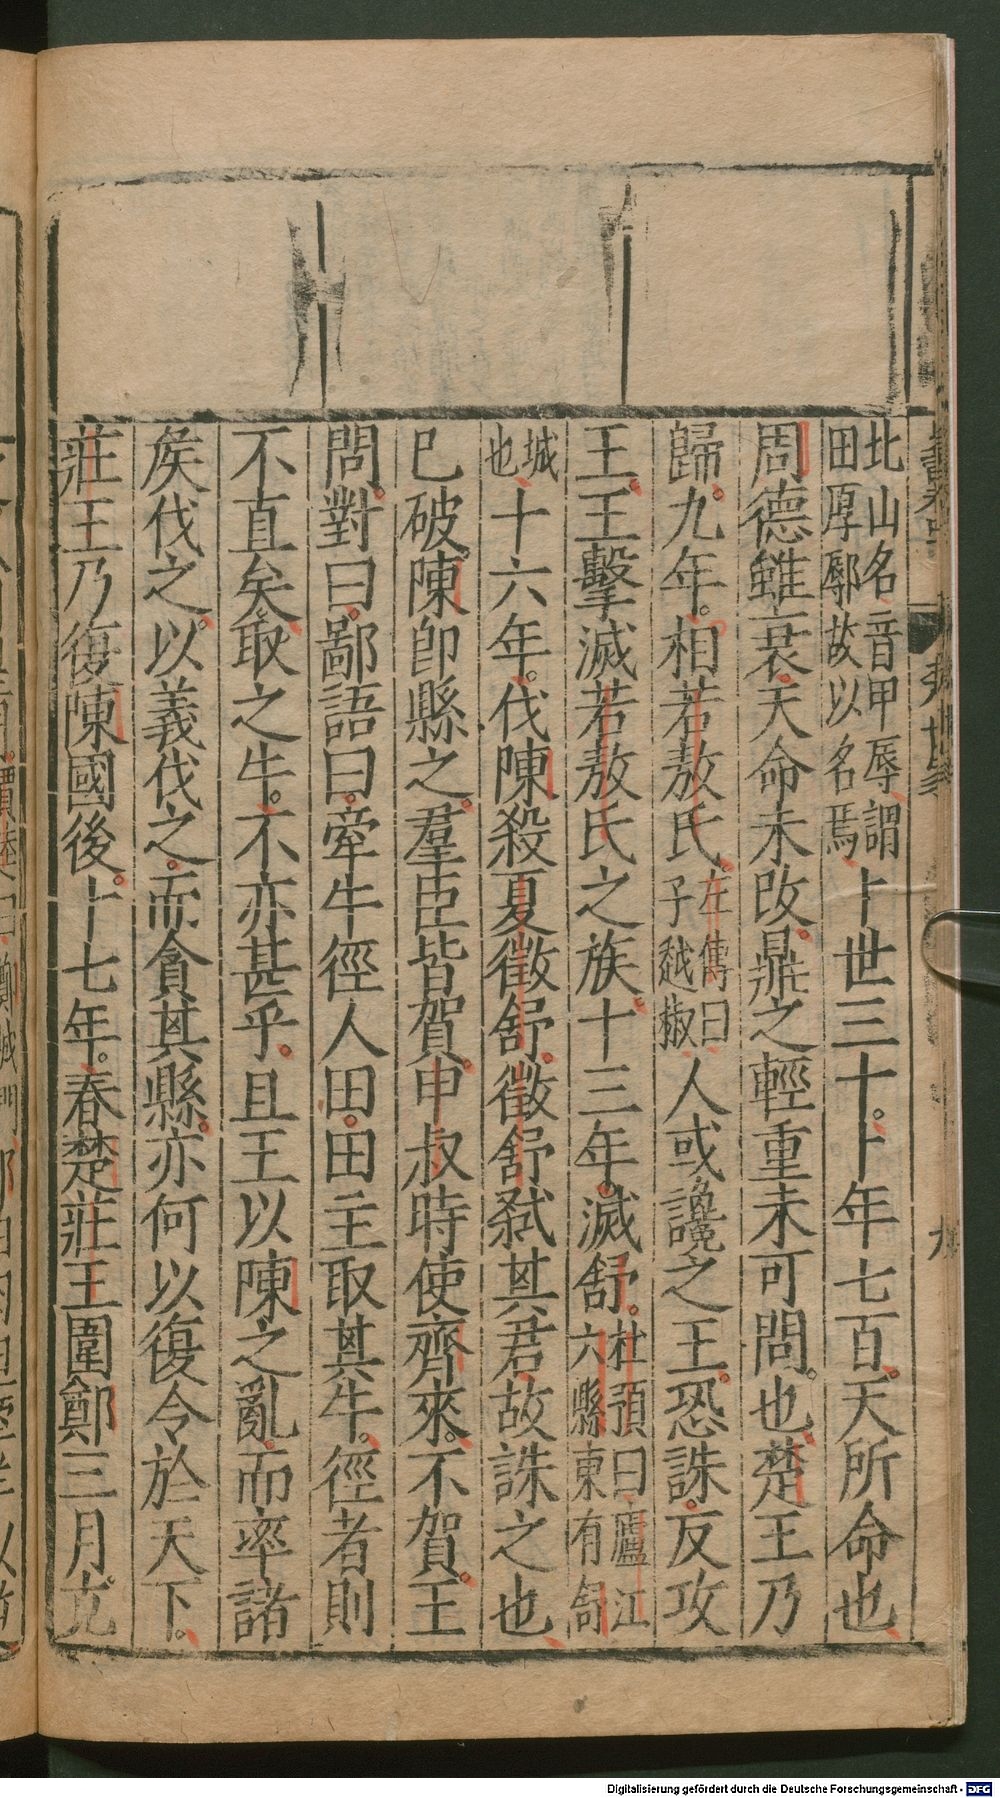 北山名音甲辱謂田厚鄏故以名焉卜世三十。卜年七百。天所命也
周德雖衰天命未改。鼎之輕重未可問。也。楚王乃
歸。九年。相若敖氏。左傳曰子越椒人或讒之王。恐誅。反攻
王。王擊滅若敖氏之族。十三年。滅舒。杜預曰廬江六縣東有舒
城也十六年。伐陳殺夏徵舒。徵舒弒其君故誅之也
已破陳卽縣之。羣臣皆賀。申叔時使齊來。不賀。王
問。對曰。鄙語曰。牽牛徑人田。田主取其牛。徑者則
不直矣。取之牛。不亦甚乎。且王以陳之亂而率諸
矦伐之。以義伐之。而貪其縣。亦何以復令於天下。
莊王乃復陳國後。十七年。春楚莊王圍鄭三月克
九
Digitalisierung gefördert durch die Deutsche Forschungsgemeinschaft - DFG